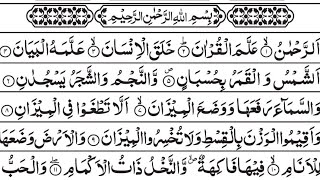 بِسْمِ اللّٰهِ الرَّحْمٰنِ الرَّحِيْمِ
اَلرَّحْمٰنُ ۙ﴿۱﴾ عَلَّمَ الْقُرْاٰنَ ؕ﴿۲﴾ خَلَقَ الْاِنْسَانَ ۙ﴿۳﴾ عَلَّمَهُ الْبَيَانَ ﴿۴﴾
اَلشَّمْسُ وَ الْقَمَرُ بِحُسْبَانٍ ۪﴿۵﴾ وَّ النَّجْمُ وَ الشَّجَرُ يَسْجُدٰنِ ﴿۶﴾
وَ السَّمَآءَ رَفَعَهَا وَ وَضَعَ الْمِيْزَانَ ۙ﴿۷﴾ اَلَّا تَطْغَوْا فِي الْمِيْزَانِ ﴿۸﴾
وَ اَقِيْمُوا الْوَزْنَ بِالْقِسْطِ وَ لَا تُخْسِرُوا الْمِيْزَانَ ﴿۹﴾ وَ الْاَرْضَ وَضَعَهَا
لِلْاَنَامِ ۙ﴿۱۰﴾ فِيْهَا فَاكِهَةٌ ۪ۙ وَّ النَّخْلُ ذَاتُ الْاَكْمَامِ ﴿۱۱﴾ وَ الْحَبُّ